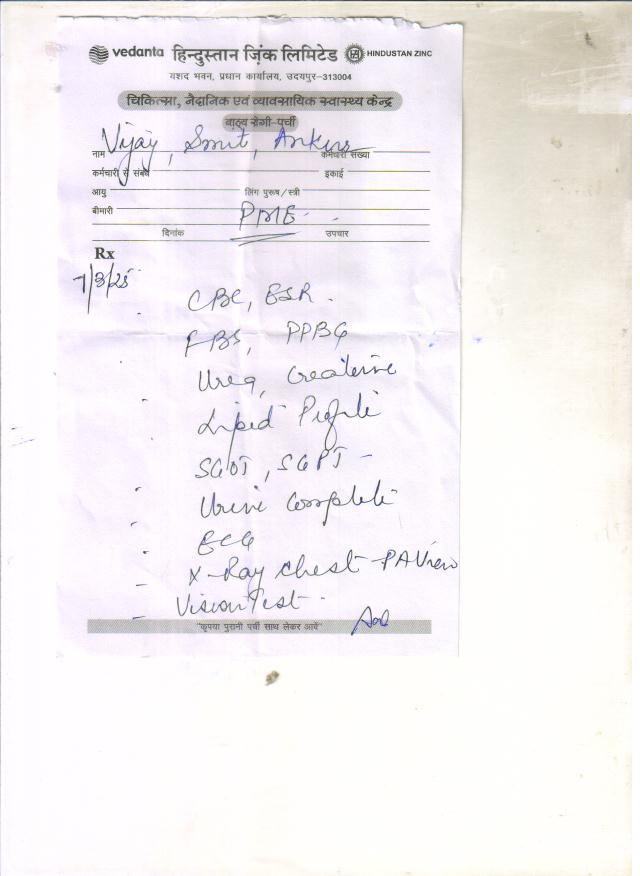 vedanta हिन्दुस्तान ज़िंक लिमिटेड HINDUSTAN ZINC
यशद भवन, प्रधान कार्यालय, उदयपुर–313004
चिकित्सा, नैदानिक एवं व्यावसायिक स्वास्थ्य केन्द्र
बाह्य रोगी-पर्ची
नाम Vijay, Smit, Ankur कर्मचारी संख्या
कर्मचारी से संबंध इकाई
आयु लिंग पुरूष/स्त्री
बीमारी PME
दिनांक उपचार
Rx
7/3/25
CBC, ESR.
FBS, PPBG
Urea, Creatinine
Lipid Profile
SGOT, SGPT
Urine Complete
ECG
X-Ray Chest-PA View
Vision Test.
"कृपया पुरानी पर्ची साथ लेकर आवें"